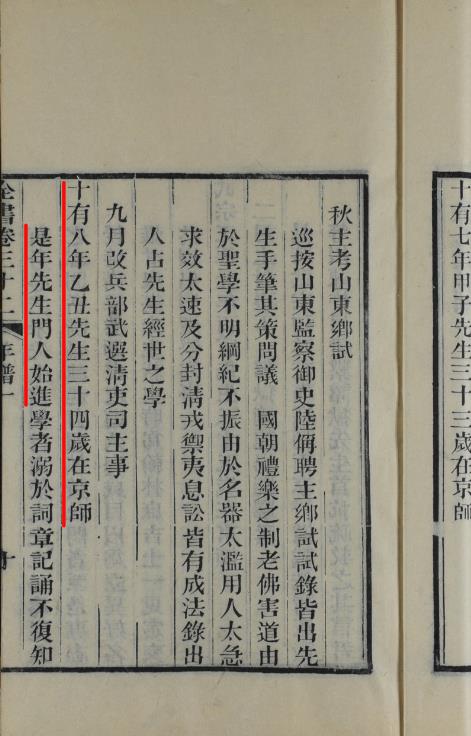 十有七年甲子先生三十三歲在京師
秋主考山東鄉試
巡按山東監察御史陸偁聘主鄉試試錄皆出先
生手筆其策問議 國朝禮樂之制老佛害道由
於聖學不明綱紀不振由於名器太濫用人太急
求效太速及分封清戎禦夷息訟皆有成法錄出
人占先生經世之學
九月改兵部武選清吏司主事
十有八年乙丑先生三十四歲在京師
是年先生門人始進學者溺於詞章記誦不復知
全書卷三十二 年譜一 十